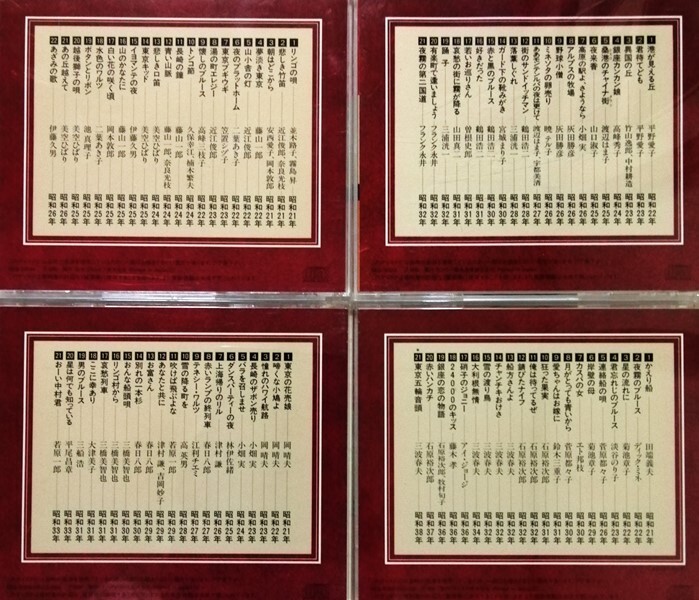 1 リンゴの唄 並木路子,霧島昇 昭和21年
2 悲しき竹笛 近江俊郎,奈良光枝 昭和21年
3 朝はどこから 安西愛子,岡本敦郎 昭和21年
4 夢淡き東京 藤山一郎 昭和22年
5 山小舎の灯 近江俊郎 昭和22年
6 夜のプラットホーム 二葉あき子 昭和22年
7 東京ブギウギ 笠置シヅ子 昭和22年
8 湯の町エレジー 近江俊郎 昭和23年
9 懐しのブルース 高峰三枝子 昭和23年
10 トンコ節 久保幸江,楠木繁夫 昭和24年
11 長崎の鐘 藤山一郎 昭和24年
12 青い山脈 藤山一郎,奈良光枝 昭和24年
13 悲しき口笛 美空ひばり 昭和24年
14 東京キッド 美空ひばり 昭和25年
15 イヨマンテの夜 伊藤久男 昭和25年
16 山のかなたに 藤山一郎 昭和25年
17 白い花の咲く頃 岡本敦郎 昭和25年
18 水色のワルツ 二葉あき子 昭和25年
19 ボタンとリボン 池真理子 昭和25年
20 越後獅子の唄 美空ひばり 昭和
21 あの丘越えて 美空ひばり 昭和26年
22 あざみの歌 伊藤久男 昭和26年
1 港が見える丘 平野愛子 昭和22年
2 君待てども 平野愛子 昭和23年
3 異国の丘 竹山逸郎,中村耕造 昭和23年
4 銀座カンカン娘 高峰秀子 昭和24年
5 桑港のチャイナ街 渡辺はま子 昭和25年
6 夜来香 山口淑子 昭和25年
7 高原の駅よ、さようなら 小畑実 昭和26年
8 アルプスの牧場 灰田勝彦 昭和26年
9 野球小僧 灰田勝彦 昭和26年
10 ミネソタの卵売り 暁テル子 昭和26年
11 ああモンテンルパの夜は更けて 渡辺はま子,宇都美清 昭和27年
12 街のサンドイッチマン 鶴田浩二 昭和28年
13 落葉しぐれ 三浦洸一 昭和28年
14 ガード下の靴みがき 宮城まり子 昭和30年
15 赤と黒のブルース 鶴田浩二 昭和30年
16 好きだった 鶴田浩二 昭和31年
17 若いお巡りさん 曽根史郎 昭和31年
18 哀愁の街に霧が降る 山田真二 昭和31年
19 踊子 三浦洸一 昭和32年
20 有楽町で逢いましょう フランク永井 昭和32年
21 夜霧の第二国道 フランク永井 昭和32年
1 東京の花売娘 岡晴夫 昭和21年
2 啼くな小鳩よ 岡晴夫 昭和22年
3 憧れのハワイ航路 岡晴夫 昭和23年
4 長崎のザボン売り 小畑実 昭和23年
5 バラを召しませ 小畑実 昭和24年
6 ダンスパーティーの夜 林伊佐緒 昭和25年
7 上海帰りのリル 津村謙 昭和26年
8 赤いランプの終列車 春日八郎 昭和27年
9 テネシー・ワルツ 江利チエミ 昭和27年
10 雪の降る町を 高英男 昭和28年
11 吹けば飛ぶよな 若原一郎 昭和
12 あなたと共に 津村謙,吉岡妙子 昭和29年
13 お富さん 春日八郎 昭和29年
14 別れの一本杉 春日八郎 昭和30年
15 おんな船頭唄 三橋美智也 昭和30年
16 リンゴ村から 三橋美智也 昭和31年
17 哀愁列車 三橋美智也 昭和31年
18 ここに幸あり 大津美子 昭和31年
19 男のブルース 三船浩 昭和31年
20 星は何でも知っている 平尾昌章 昭和33年
21 おーい中村君 若原一郎 昭和33年
1 かえり船 田端義夫 昭和21年
2 夜霧のブルース ディック・ミネ 昭和22年
3 星の流れに 菊池章子 昭和22年
4 君忘れじのブルース 淡谷のり子 昭和
5 連絡船の唄 菅原都々子 昭和
6 岸壁の母 菊池章子 昭和29年
7 カスバの女 エト邦枝 昭和30年
8 月がとっても青いから 菅原都々子 昭和30年
9 愛ちゃんはお嫁に 鈴木三重子 昭和31年
10 狂った果実 石原裕次郎 昭和31年
11 俺は待ってるぜ 石原裕次郎 昭和
12 錆びたナイフ 石原裕次郎 昭和32年
13 船方さんよ 三波春夫 昭和32年
14 チャンチキおけさ 三波春夫 昭和32年
15 雪の渡り鳥 三波春夫 昭和32年
16 大利根無情 三波春夫 昭和34年
17 硝子のジョニー アイ・ジョージ 昭和36年
18 24000のキッス 藤木孝 昭和36年
19 銀座の恋の物語 石原裕次郎,牧村旬子 昭和36年
20 赤いハンカチ 石原裕次郎 昭和37年
21 東京五輪音頭 三波春夫 昭和38年